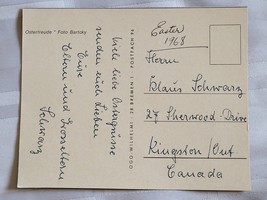 Osterfreude * Foto Baricky
Viele liebe Ostergrüsse
senden euch Lieben
Eure
Eltern und Grosseltern
Schwarz
Easter
1968
Herrn
Klaus Schwarz
27 Sherwood-Drive
Kingston/Ont
Canada